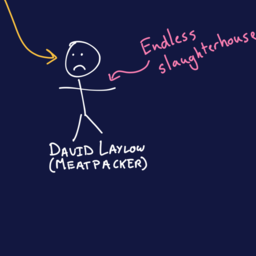 Endless
slaughterhouse
DAVID LAYLOW
(MEATPACKER)